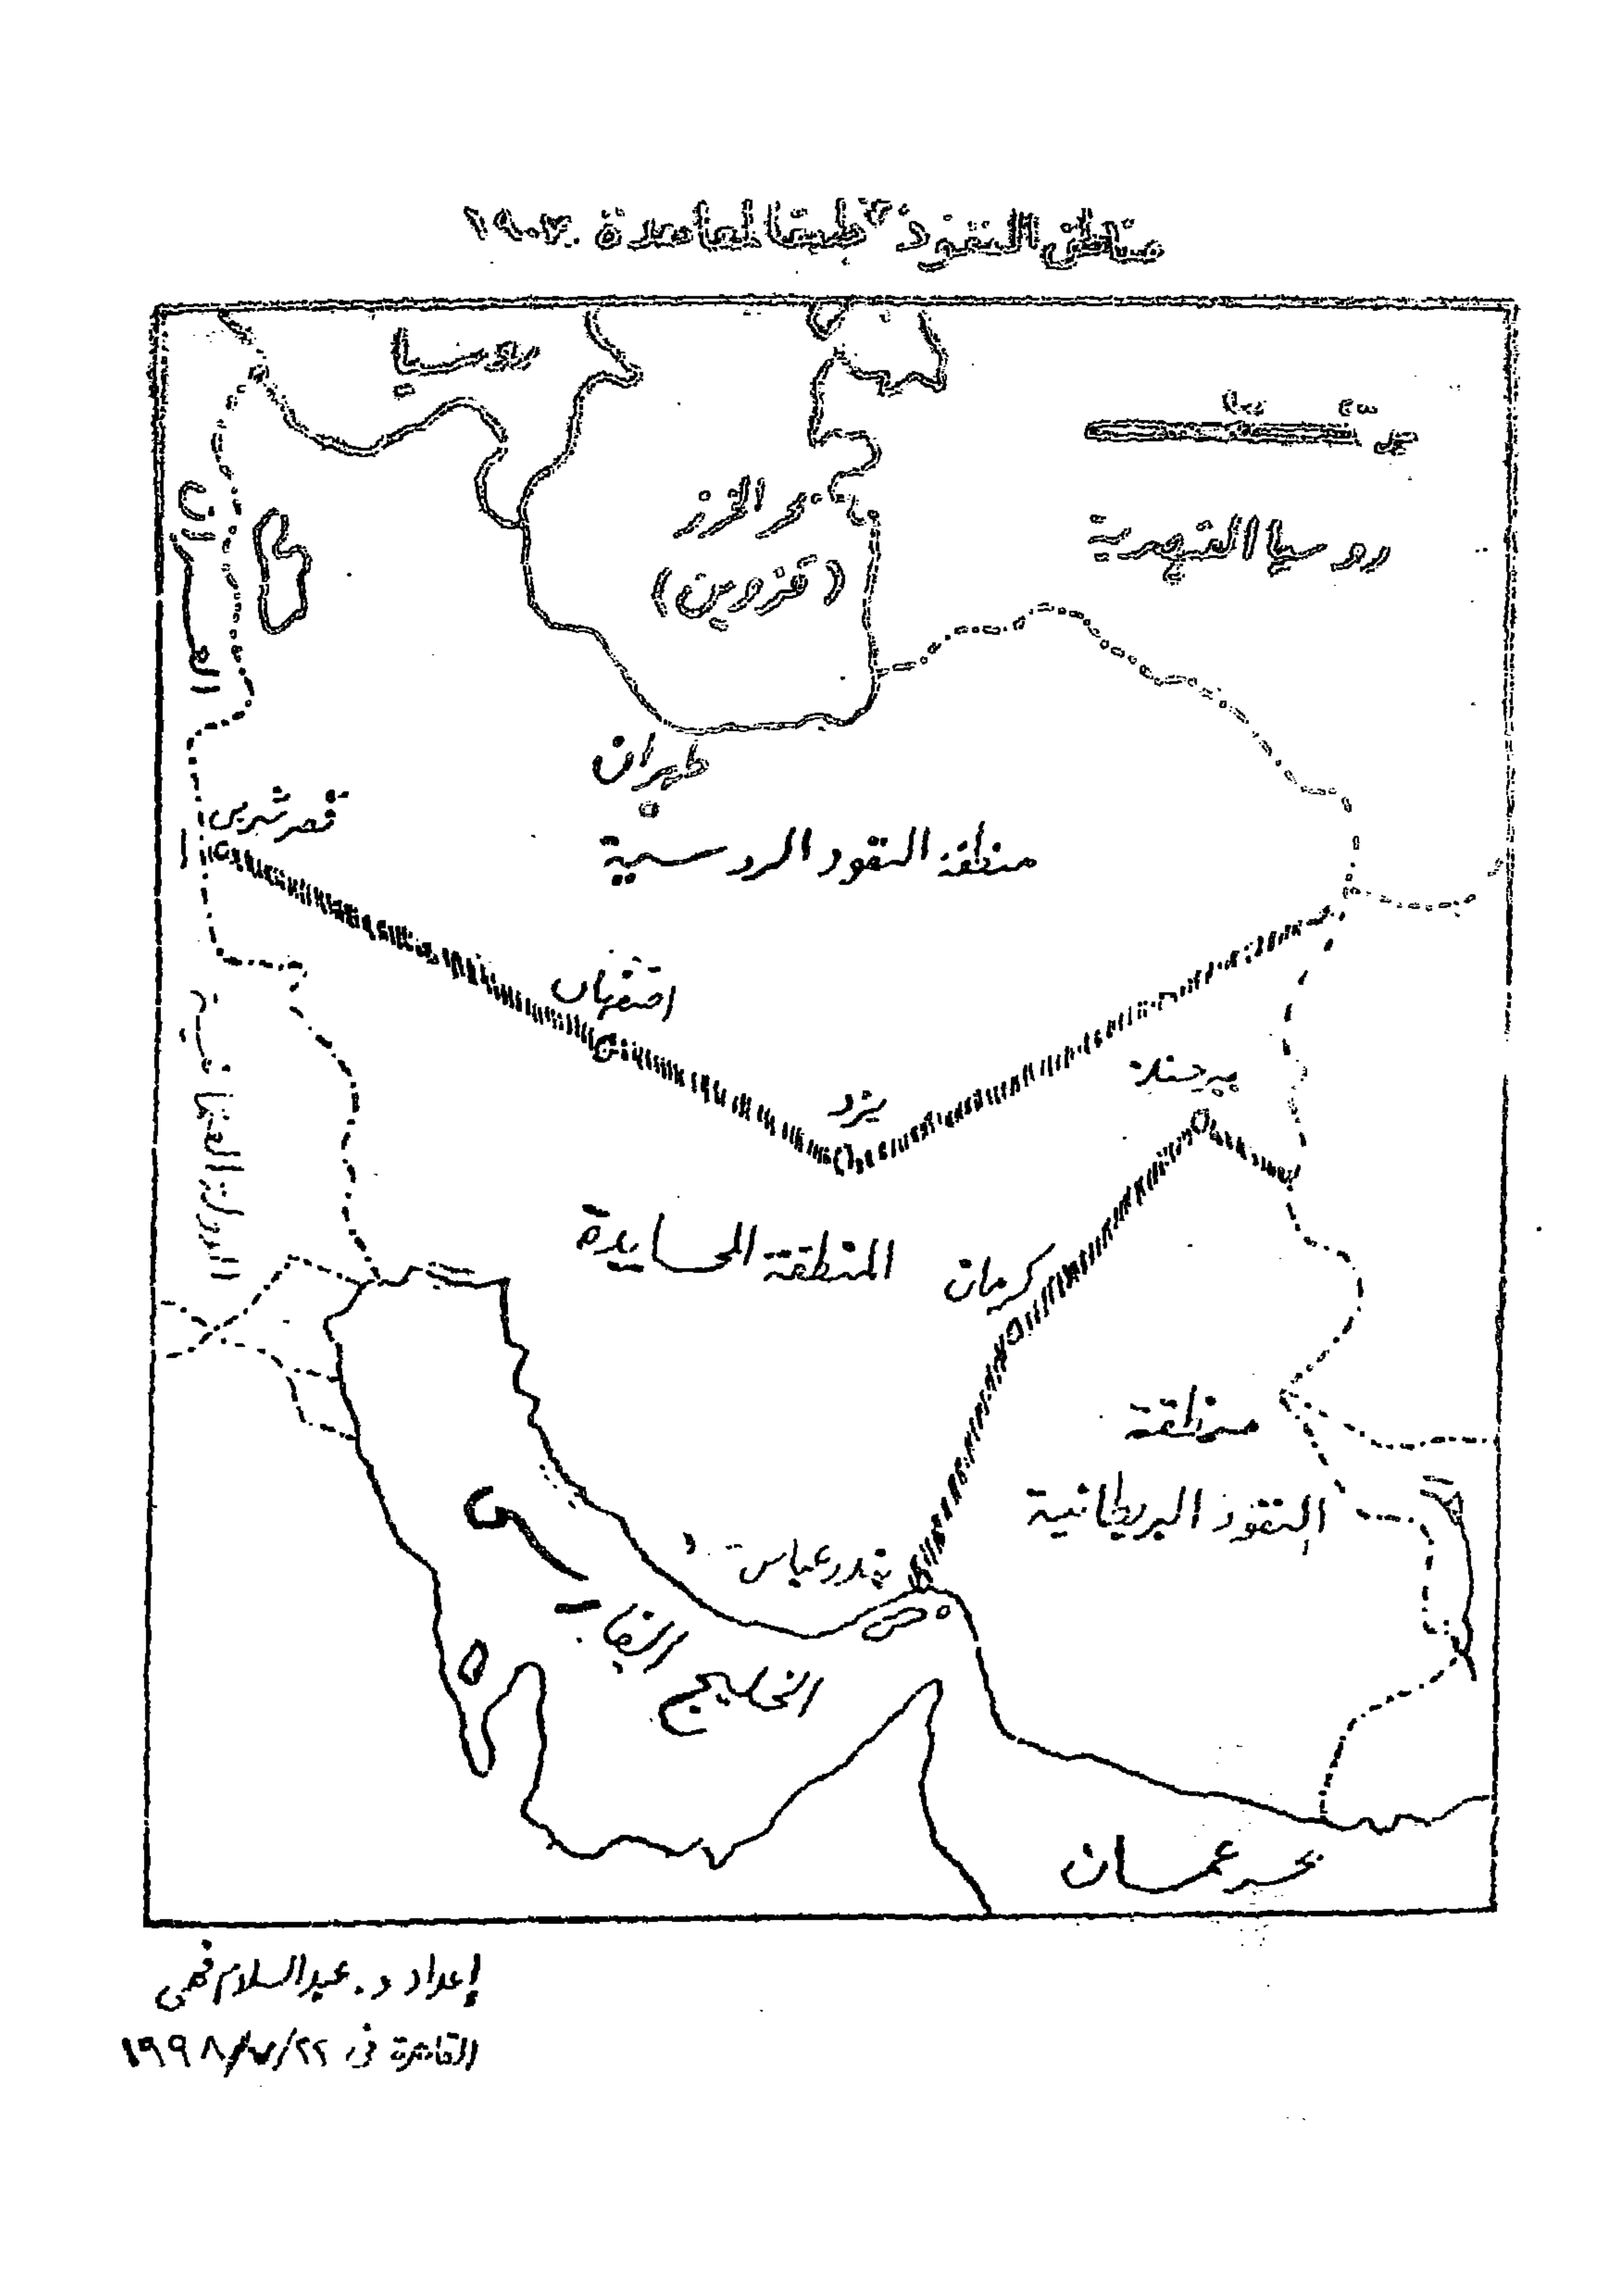 مناطق النفوذ طبقا لمعاهدة ١٩٠٧
روسيا
بحر الخزر
(قزوين)
روسيا القيصرية
طهران
قصر شرين
منطقة النفوذ الروسية
اصفهان
يزد
بيرجند
الدولة العثمانية
المنطقة المحايدة
كرمان
منطقة
النفوذ البريطانية
بندر عباس
الخليج الفارسى
بحر عمان
إعداد د. عبد السلام فهمى
القاهرة فى ٢٢/٧/١٩٩٨